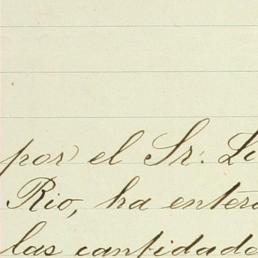 por el Sr. Li
Rio, ha enter
las cantidade